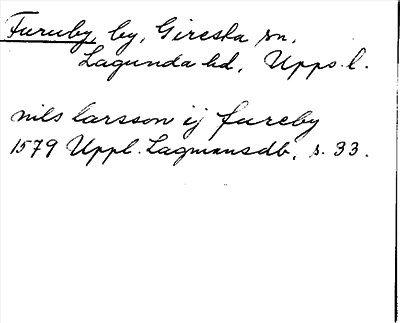 Furuby, by, Giresta sn,
Lagunda hd, Upps. l.
nils larsson ij fureby
1579 Uppl. Lagmansdb. s. 33.